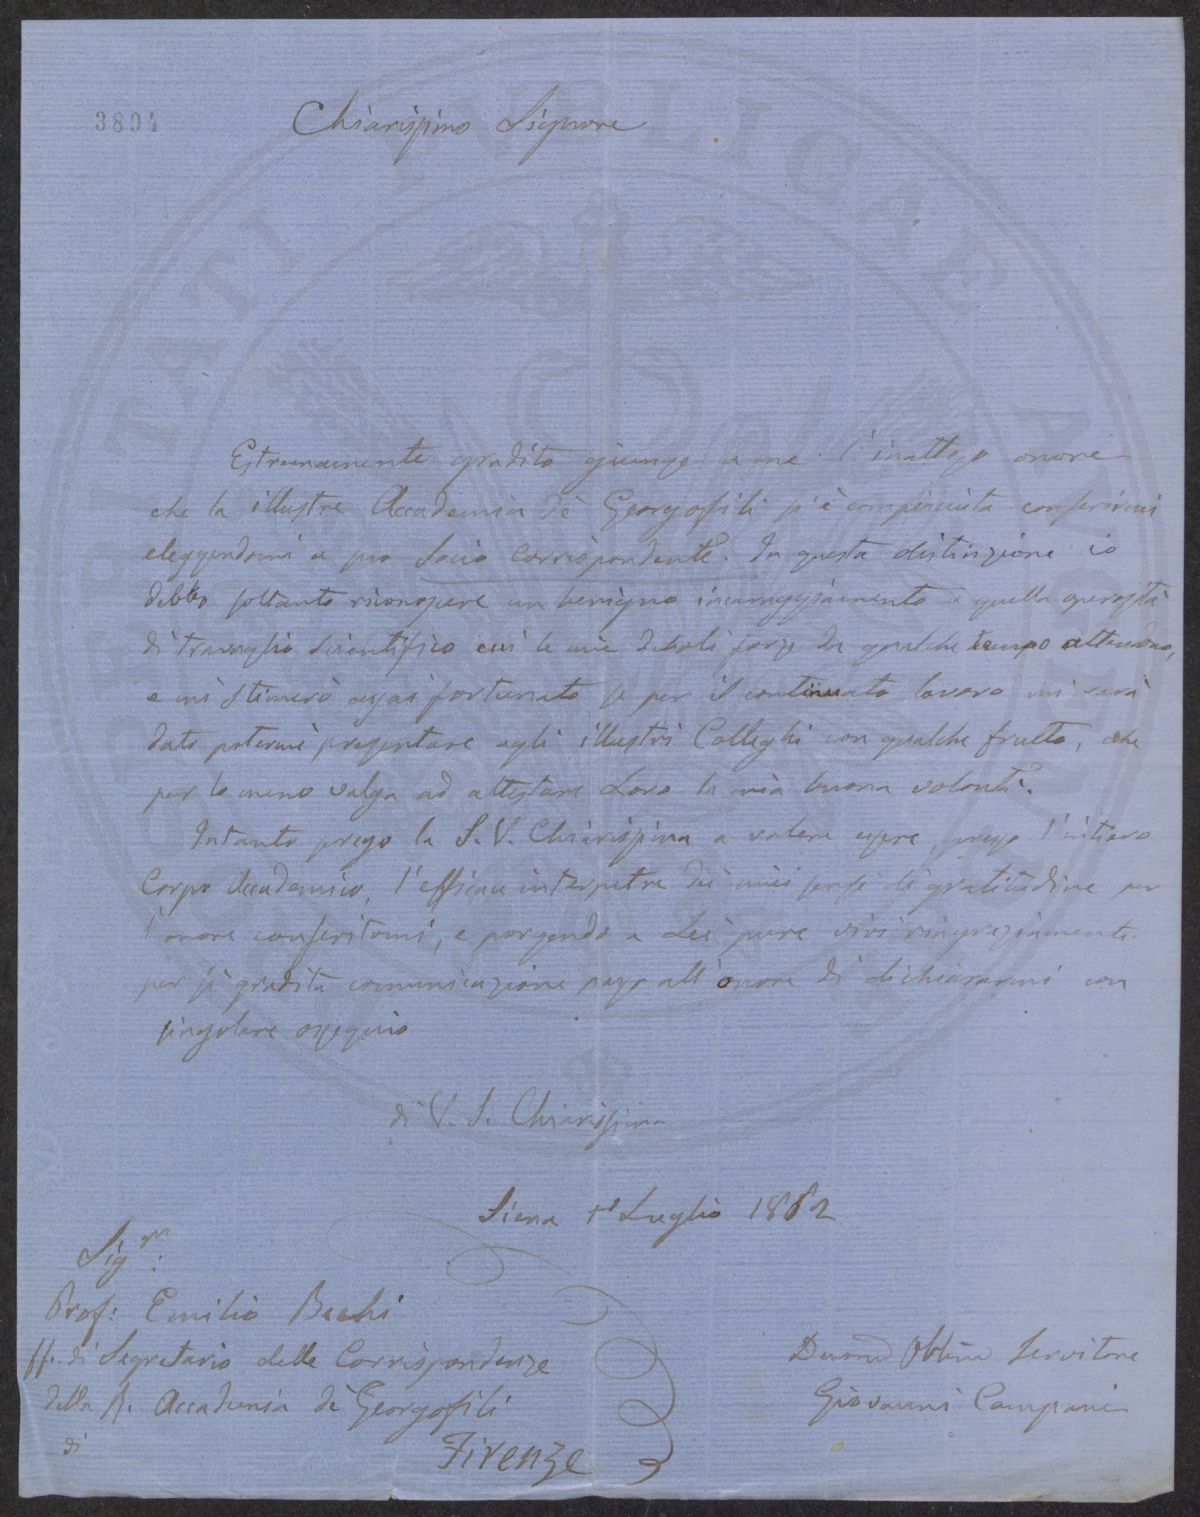 3894
Chiarissimo Signore
Estremamente gradito giunge a me l'inatteso onore
che la illustre Accademia dè Georgofili si è compiaciuta conferirmi
eleggendomi a suo Socio Corrispondente. In questa distinzione io
debbo soltanto riconoscere un benigno incoraggiamento a quella operosità
di travaglio scientifico cui le mie deboli forze da qualche tempo attendono,
e mi stimerò assai fortunato se per il continuato lavoro mi sarà
dato potermi presentare agli illustri Colleghi con qualche frutto, che
per lo meno valga ad attestare Loro la mia buona volontà.
Intanto prego la S. V. Chiarissima a volere essere, presso l'intiero
Corpo Accademico, l'efficace interpetre dei miei sensi di gratitudine per
l'onore conferitomi, e porgendo a Lei pure vivi ringraziamenti
per sì gradita comunicazione passo all'onore di dichiararmi con
singolare ossequio
di V. S. Chiarissima
Siena 1° Luglio 1882
Sigr.
Prof: Emilio Bechi
ff. di Segretario delle Corrispondenze
della R. Accademia dè Georgofili
di
Firenze
Devmo Obblmo Servitore
Giovanni Campani
PROSPERITATI PVBLICAE AVGENDAE